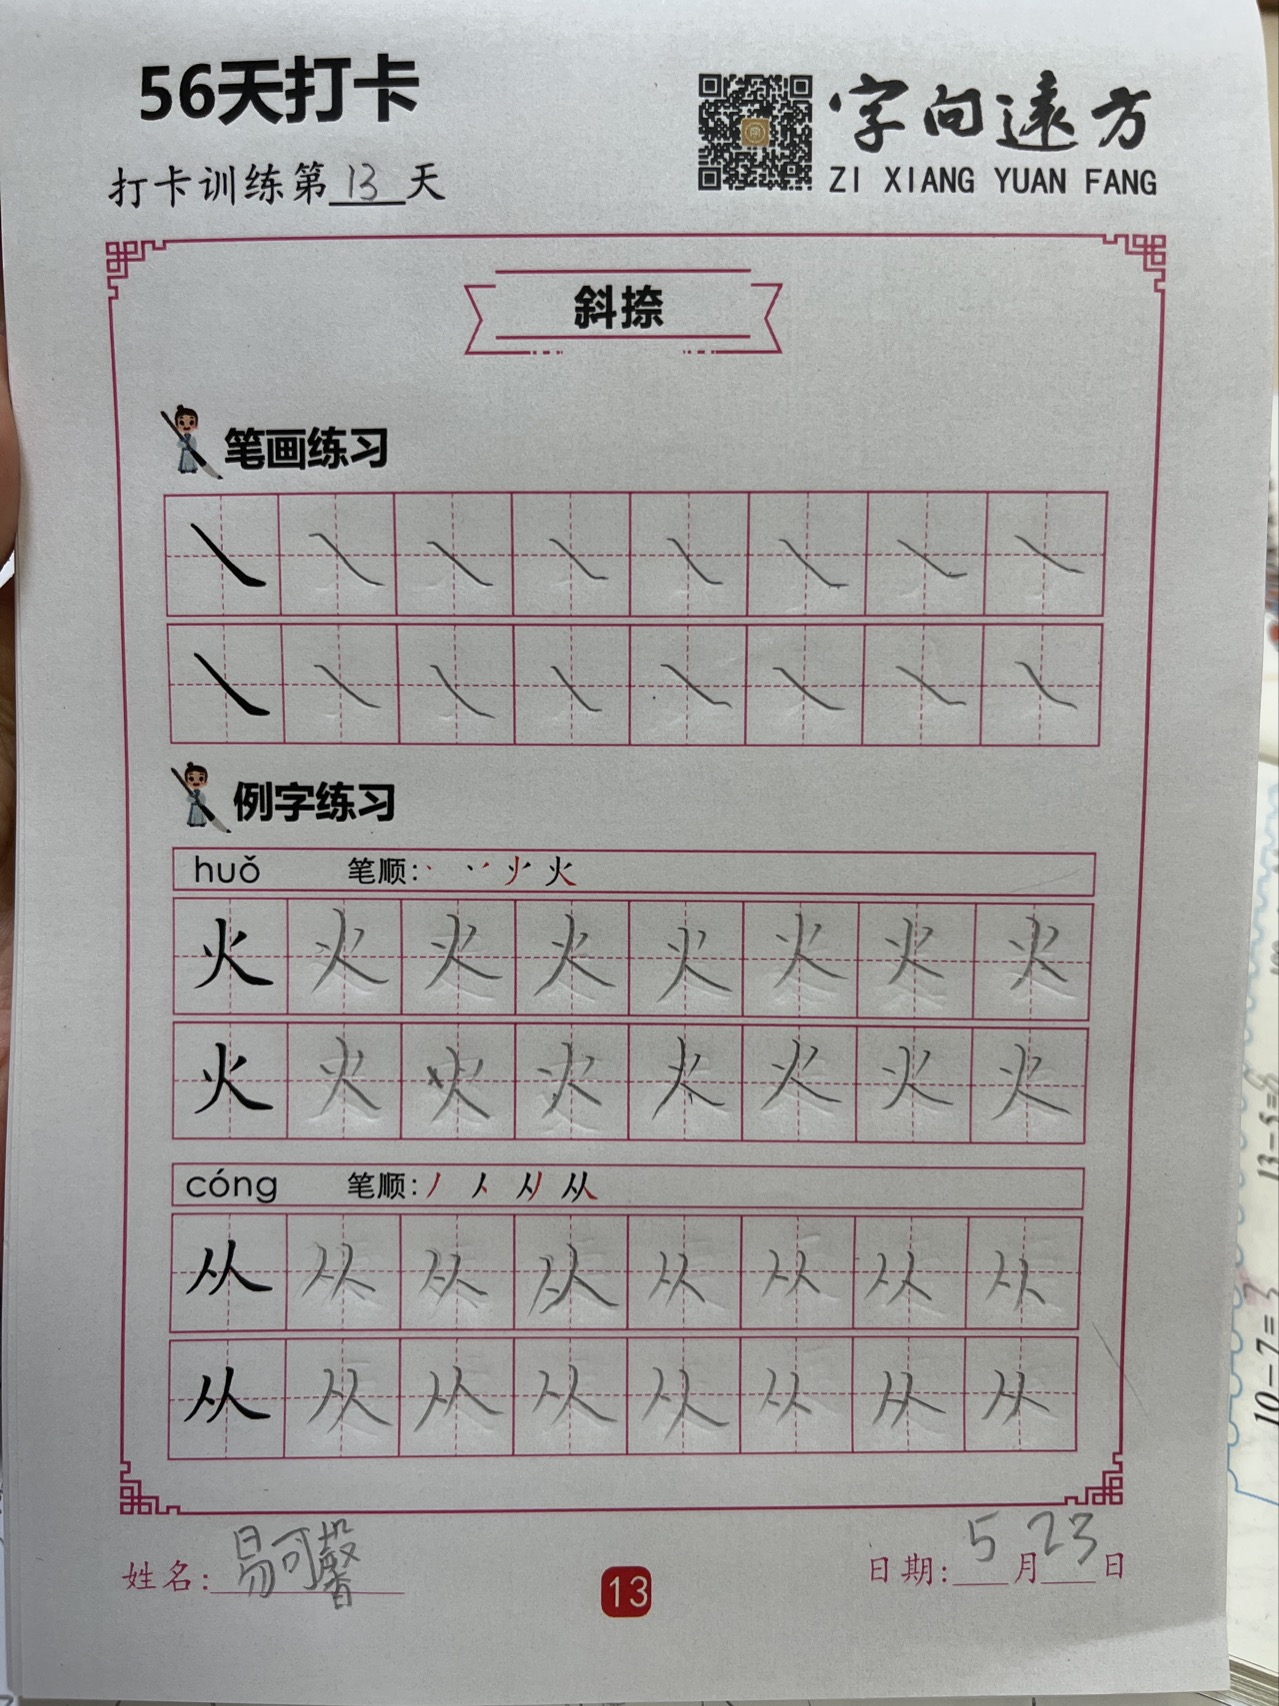 56天打卡
字向遠方
打卡训练第13天
ZI XIANG YUAN FANG
斜捺
笔画练习
例字练习
huǒ 笔顺: 火
火 火 火 火 火 火 火 火
火 火 火 火 火 火 火 火
cóng 笔顺: 丿 从
从 从 从 从 从 从 从 从
从 从 从 从 从 从 从 从
姓名: 易可馨
13
日期: 5月23日
13-5=8
10-7=3